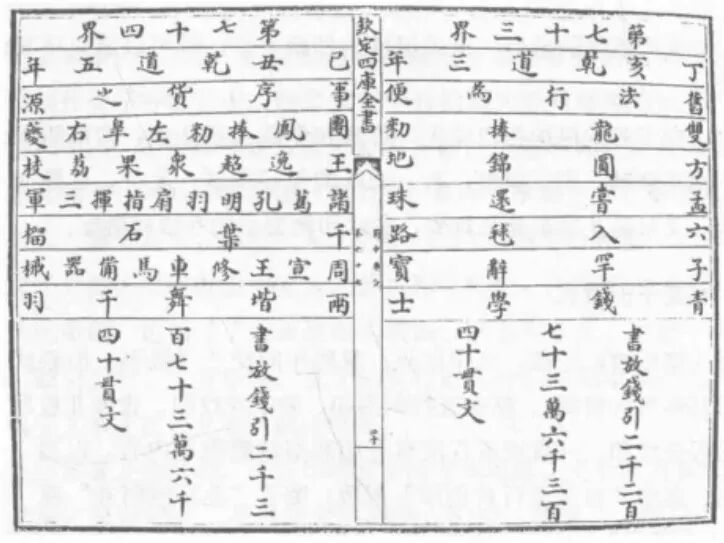 第七十三界
丁亥乾道三年
舊法行為便
雙龍捧勑
方圓錦地
孟嘗還珠
六入毬路
子罕辭寶
青錢學士
書放錢引二千二百
七十三萬六千三百
四十貫文
欽定四庫全書
二十
第七十四界
己丑乾道五年
軍序貨之源
團鳳捧勑左皋右夔
王逸超衆果荔枝
諸葛孔明羽扇指揮三軍
千葉石榴
周宣王修車馬備器械
兩堦舞干羽
書放錢引二千三
百七十三萬六千
四十貫文